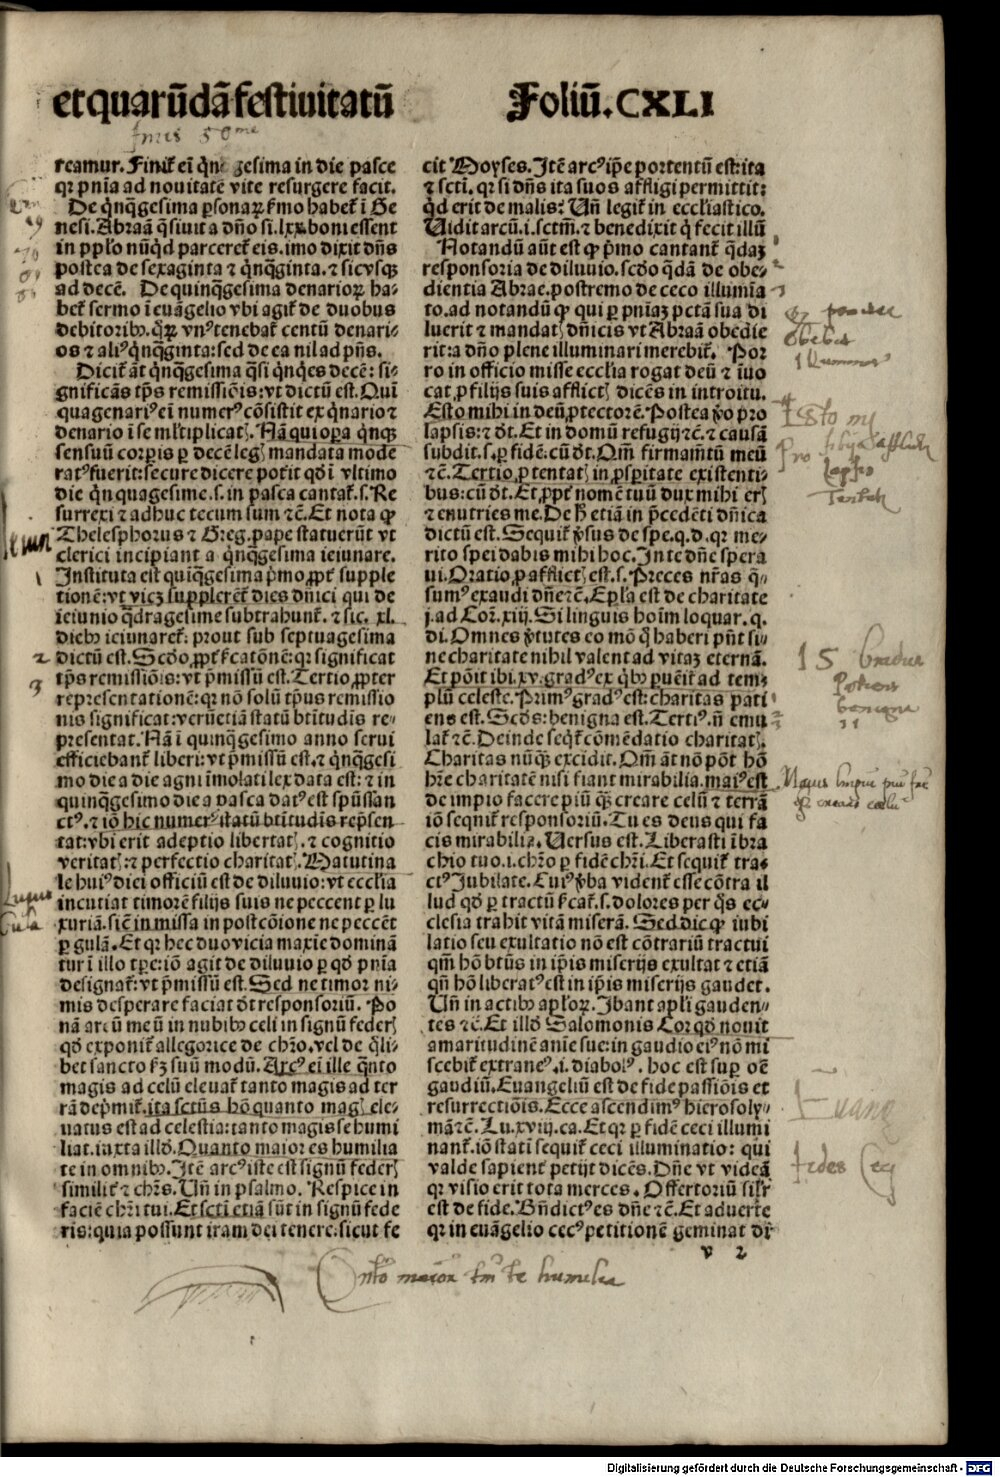 et quarūdā festiuitatū
Foliū. CXLI
reamur. Finit᷑ eī q̇n gesima in die pasce
qꝛ pn̄ia ad nouitatē vite resurgere facit.
De q̇nq̄gesima ꝑsonaꝝ ẜmo habet᷑ ī Ge
nesi. Abraā q̄siuit a dn̄o si .lxx. boni essent
in pplo nūqͥd parceret᷑ eis. imo dixit dn̄s
postea de sexaginta ⁊ q̇nq̄ginta. ⁊ sic vsqꝫ
ad decē. De quinq̄gesima denarioꝝ ha-
bet᷑ sermo ī euāgelio vbi agit᷑ de duobus
debitoribꝰ. qͣꝝ vnꝰ tenebat᷑ centū denari-
os ⁊ aliꝰ q̇nq̄ginta: sed de ea nil ad pn̄s.
Dicit᷑ āt q̇nq̄gesima q̄si q̇nq̇es decē: si-
gnificās tp̄s remissiōis: vt dictū est. Quī
quagenariꝰ eī numerꝰ cōsistit ex q̇nario ⁊
denario ī se ml̓tiplicatꝭ. Nā qui oꝑa q̇nqꝫ
sensuū corꝑis ꝑ decē legꝭ mandata mode
ratꝰ fuerit: secure dicere pot̓it qd̓ ī vltimo
die q̇nquagesime .s. in pasca cantat᷑ .s. Re
surrexi ⁊ adhuc tecum sum ⁊c̄. Et nota ꝙ
Thelesphorus ⁊ Greg. pape statuerūt vt
clerici incipiant a q̇nq̄gesima ieiunare.
Instituta est quīq̄gesima p̓mo ꝓpt̓ supple
tionē: vt vicꝫ supplerēt᷑ dies dn̄ici qui de
ieiunio q̄dragesime subtrahunt᷑. ⁊ sic .xl.
diebꝰ ieiunaret᷑: prout sub septuagesima
dictū est. Scd̓o ꝓpt̓ ẜcatōnē: qꝛ significat
tp̄s remissiōis: vt p̄missū est. Tertio ꝓpter
representationē: qꝛ nō solū tp̄us remissio
nis significat: verūetiā statū btītudīs re-
presentat. Nā ī quinq̄gesimo anno serui
efficiebant᷑ liberi: vt p̄missū est. ⁊ q̇nq̄gesi
mo die a die agni īmolati lex data est: ⁊ in
quinq̄gesimo die a pasca datꝰ est spūssan
ctꝰ. ⁊ iō hic numerꝰ statū btītudīs rep̄sen
tat: vbi erit adeptio libertatꝭ. ⁊ cognitio
veritatꝭ: ⁊ perfectio charitatꝭ. Matutina
le huiꝰ diei officiū est de diluuio: vt ecclīa
incutiat timorē filijs suis ne peccent ꝑ lu
xuriā. sic̄ in missa in postcōione ne peccēt
ꝑ gulā. Et qꝛ hec duo vicia maxīe dominā
tur ī illo tꝑe: iō agit de diluuio ꝑ qd̓ pn̄ia
designat᷑: vt p̄missū est. Sed ne timor ni-
mis desperare faciat d̓t responsoriū. Po
nā arcū meū in nubibꝰ celi in signū federꝭ
qd̓ exponit᷑ allegorice de chr̄o. vel de q̄li-
bet sancto ẜꝫ suū modū. Arcꝰ eī ille q̇nto
magis ad celū eleuat᷑ tanto magis ad ter
rā dep̓mit᷑. ita sctūs hō quanto magꝭ ele-
uatus est ad celestia: tanto magis se humi
liat. iuxta illd̓. Quanto maior es humilia
te in omnibꝰ. Itē arcꝰ iste est signū federꝭ
similit̓ ⁊ chr̄s. Un̄ in psalmo. Respice in
faciē chr̄i tui. Et scti etiā sūt in signū fede
ris: quia possunt iram dei tenere. sicut fe
cit Moyses. Itē arcꝰ ip̄e portentū est: ita
⁊ sctī. qꝛ si dn̄s ita suos affligi permittit:
qͥd erit de malis? Un̄ legit᷑ in eccl̓iastico.
Uidit arcū .i. sctm̄. ⁊ benedixit q̇ fecit illū
Notandū aūt est ꝙ p̓mo cantant᷑ q̄daꝫ
responsoria de diluuio. scd̓o q̄dā de obe-
dientia Abrae. postremo de ceco illumīa
to. ad notandū ꝙ qui ꝑ pn̄iaꝫ pctā sua di
luerit ⁊ mandatꝭ dn̄icis vt Abraā obedie
rit: a dn̄o plene illuminari merebit᷑. Por
ro in officio misse ecclīa rogat deū ⁊ īuo
cat ꝓ filijs suis afflictꝭ dicēs in introitu.
Esto mihi in deū ꝓtectorē. Postea v̓o pro
lapsis: ⁊ d̓t. Et in domū refugij ⁊c̄. ⁊ causā
subdit .s. ꝑ fidē: cū d̓t. Qm̄ firmamtū meū
⁊c̄. Tertio ꝓ tentatꝭ in ꝓsꝑitate existenti-
bus: cū d̓t. Et ꝓpt̓ nomē tuū dux mihi erꝭ
⁊ enutries me. De h̓ etiā in p̄cedēti dn̄ica
dictū est. Sequit᷑ v̓sus de spe. q.d. qꝛ me-
rito spei dabis mihi hoc. In te dn̄e spera
ui. Oratio ꝓ afflictꝭ est .s. Preces nr̄as q̄-
sumꝰ exaudi dn̄e ⁊c̄. Epl̓a est de charitate
j. ad Cor̄. xiij. Si linguis hoīm loquar. q.
di. Omnes v̓tutes eo mō q̇ haberi pn̄t si-
ne charitate nihil valent ad vitaꝫ eternā.
Et pōit ibi .xv. gradꝰ ex q̇bꝰ puēit᷑ ad tem-
plū celeste. Primꝰ gradꝰ est: charitas pati
ens est. Scd̓s: benigna est. Tertiꝰ. nō emu
lat᷑ ⁊c̄. Deinde seqͥt᷑ cōmēdatio charitatꝭ.
Charitas nūqͣꝫ excidit. Om̄ āt nō pōt hō
hr̄e charitatē nisi fiant mirabilia. maiꝰ est
de impio facere piū qͣꝫ creare celū ⁊ terrā
iō seqnit᷑ responsoriū. Tu es deus qui fa
cis mirabilia. Uersus est. Liberasti ī bra
chio tuo .i. chr̄o ꝑ fidē chr̄i. Et sequit᷑ tra-
ctꝰ Jubilate. Cuiꝰ v̓ba vident᷑ esse cōtra il
lud qd̓ ꝑ tractū ẜcat᷑ .s. dolores per q̄s ec-
clesia trahit vitā miserā. Sed dic ꝙ iubi
latio seu exultatio nō est cōtrariū tractui
qm̄ hō btūs in ip̄is miserijs exultat ⁊ etiā
qn̄ hō liberatꝰ est in ip̄is miserijs gaudet.
Un̄ in actibꝰ apl̓oꝝ. Ibant apl̓i gauden-
tes ⁊c̄. Et illd̓ Salomonis Cor qd̓ nouit
amaritudinē anīe sue: in gaudio eiꝰ nō mi
scebit᷑ extraneꝰ .i. diabolꝰ. hoc est suꝑ oē
gaudiū. Euangeliū est de fide passiōis et
resurrectiōis. Ecce ascendimꝰ hierosoly-
mā ⁊c̄. Lu. xviij. ca. Et qꝛ ꝑ fidē ceci illumi
nant᷑. iō statī sequit᷑ ceci illuminatio: qui
valde sapient᷑ petijt dicēs. Dn̄e vt videā
qꝛ visio erit tota merces. Offertoriū sil̓r
est de fide. Bn̄dictꝰ es dn̄e ⁊c̄. Et aduerte
qꝛ in euāgelio cecꝰ petitionē geminat dr̄
v 2
1
2
3
Gula
15 gradus
benigna
Euang
fides Ceci
Digitalisierung gefördert durch die Deutsche Forschungsgemeinschaft - DFG